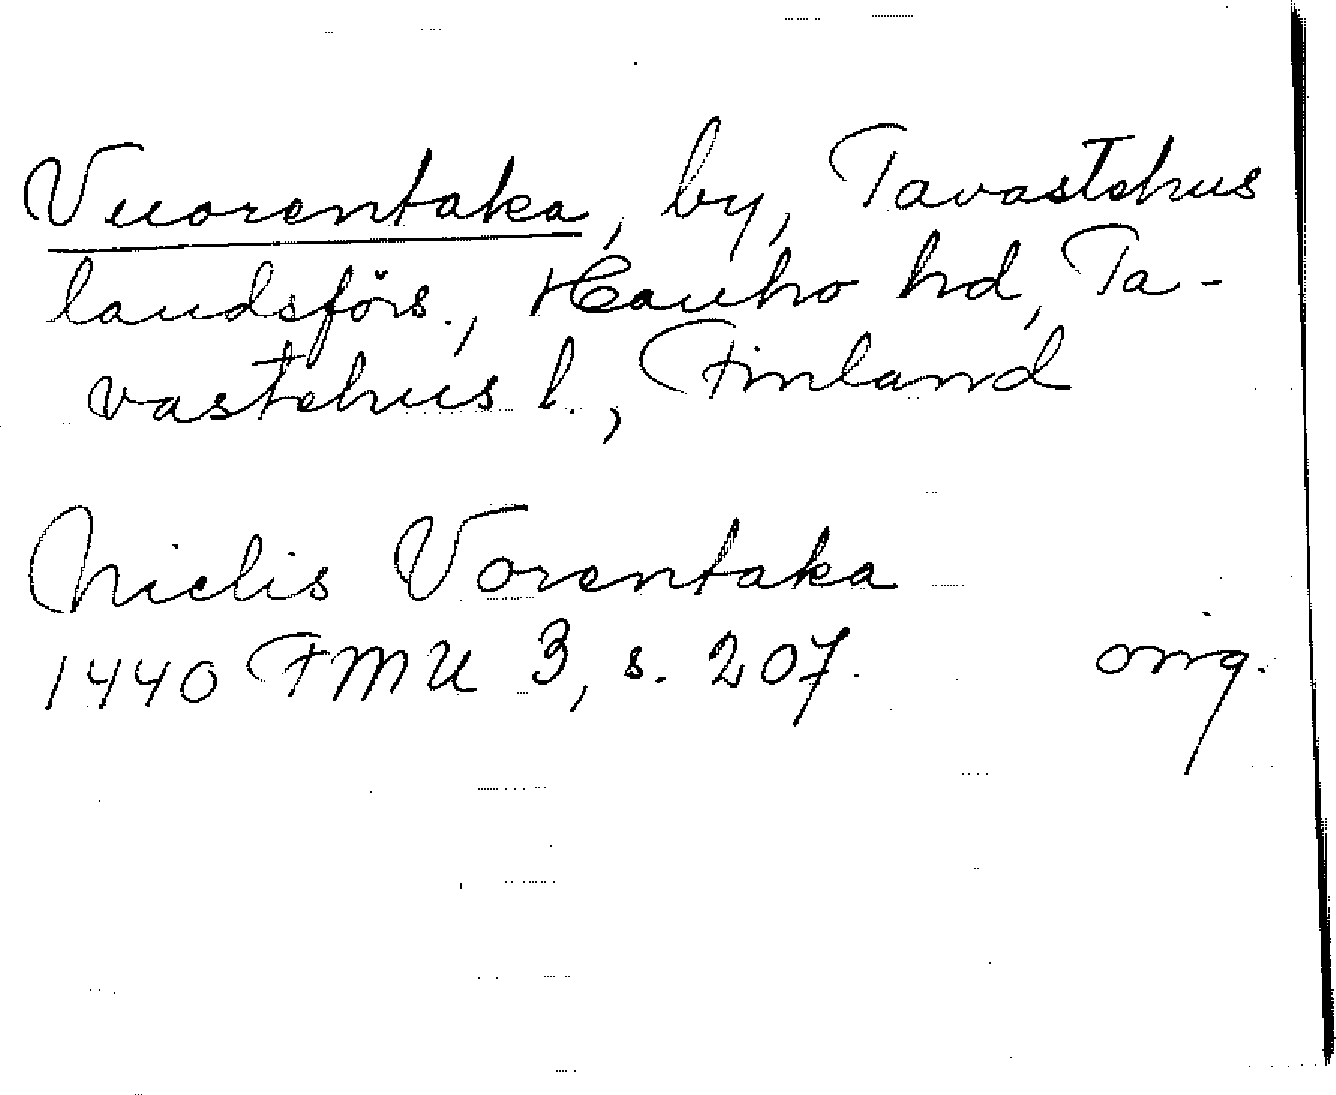 Vuorentaka, by, Tavastehus
landsförs., Hauho hd, Ta-
vastehus l., Finland
Niclis Vorentaka
1440 FMU 3, s. 207. orig.